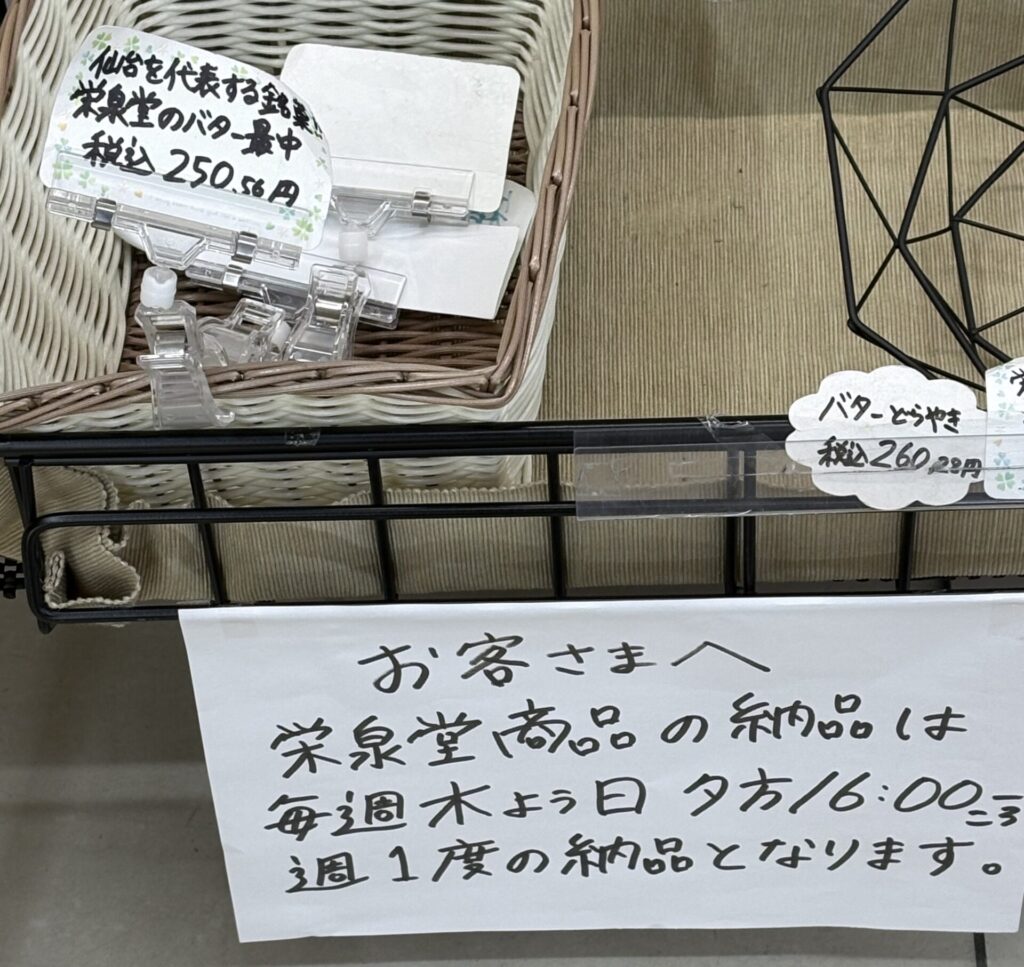 仙台を代表する銘菓!!
栄泉堂のバター最中
税込250.56円
バターどらやき
税込260.28円
お客さまへ
栄泉堂商品の納品は
毎週木よう日 夕方16:00ころ
週1度の納品となります。